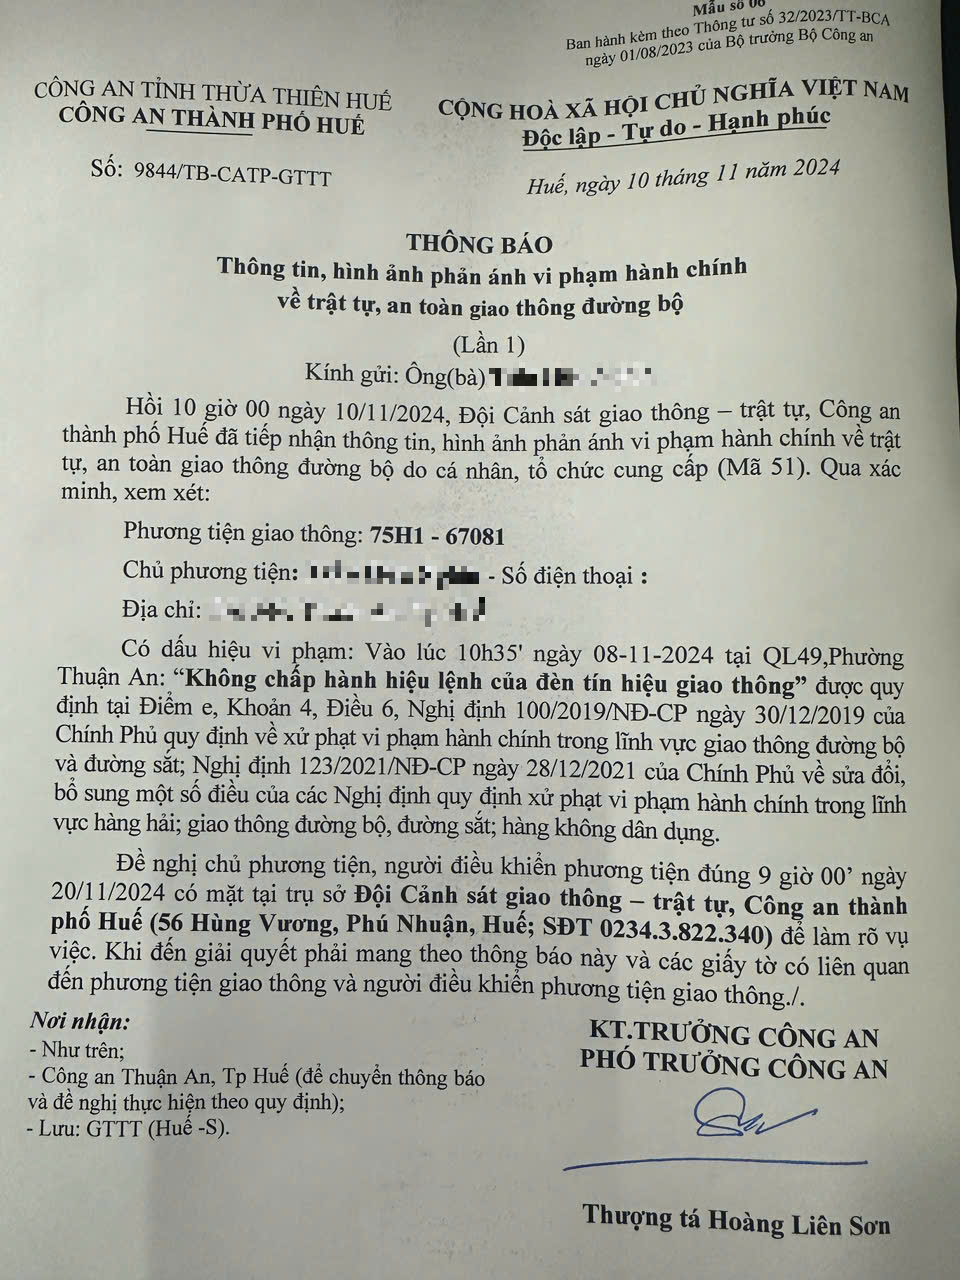 Mẫu số 06
Ban hành kèm theo Thông tư số 32/2023/TT-BCA
ngày 01/08/2023 của Bộ trưởng Bộ Công an
CÔNG AN TỈNH THỪA THIÊN HUẾ
CÔNG AN THÀNH PHỐ HUẾ
CỘNG HOÀ XÃ HỘI CHỦ NGHĨA VIỆT NAM
Độc lập - Tự do - Hạnh phúc
Số: 9844/TB-CATP-GTTT
Huế, ngày 10 tháng 11 năm 2024
THÔNG BÁO
Thông tin, hình ảnh phản ánh vi phạm hành chính
về trật tự, an toàn giao thông đường bộ
(Lần 1)
Kính gửi: Ông(bà)
Hồi 10 giờ 00 ngày 10/11/2024, Đội Cảnh sát giao thông – trật tự, Công an
thành phố Huế đã tiếp nhận thông tin, hình ảnh phản ánh vi phạm hành chính về trật
tự, an toàn giao thông đường bộ do cá nhân, tổ chức cung cấp (Mã 51). Qua xác
minh, xem xét:
Phương tiện giao thông: 75H1 - 67081
Chủ phương tiện: - Số điện thoại :
Địa chỉ:
Có dấu hiệu vi phạm: Vào lúc 10h35' ngày 08-11-2024 tại QL49,Phường
Thuận An: “Không chấp hành hiệu lệnh của đèn tín hiệu giao thông” được quy
định tại Điểm e, Khoản 4, Điều 6, Nghị định 100/2019/NĐ-CP ngày 30/12/2019 của
Chính Phủ quy định về xử phạt vi phạm hành chính trong lĩnh vực giao thông đường bộ
và đường sắt; Nghị định 123/2021/NĐ-CP ngày 28/12/2021 của Chính Phủ về sửa đổi,
bổ sung một số điều của các Nghị định quy định xử phạt vi phạm hành chính trong lĩnh
vực hàng hải; giao thông đường bộ, đường sắt; hàng không dân dụng.
Đề nghị chủ phương tiện, người điều khiển phương tiện đúng 9 giờ 00’ ngày
20/11/2024 có mặt tại trụ sở Đội Cảnh sát giao thông – trật tự, Công an thành
phố Huế (56 Hùng Vương, Phú Nhuận, Huế; SĐT 0234.3.822.340) để làm rõ vụ
việc. Khi đến giải quyết phải mang theo thông báo này và các giấy tờ có liên quan
đến phương tiện giao thông và người điều khiển phương tiện giao thông./.
Nơi nhận:
- Như trên;
- Công an Thuận An, Tp Huế (để chuyển thông báo
và đề nghị thực hiện theo quy định);
- Lưu: GTTT (Huế -S).
KT.TRƯỞNG CÔNG AN
PHÓ TRƯỞNG CÔNG AN
Thượng tá Hoàng Liên Sơn